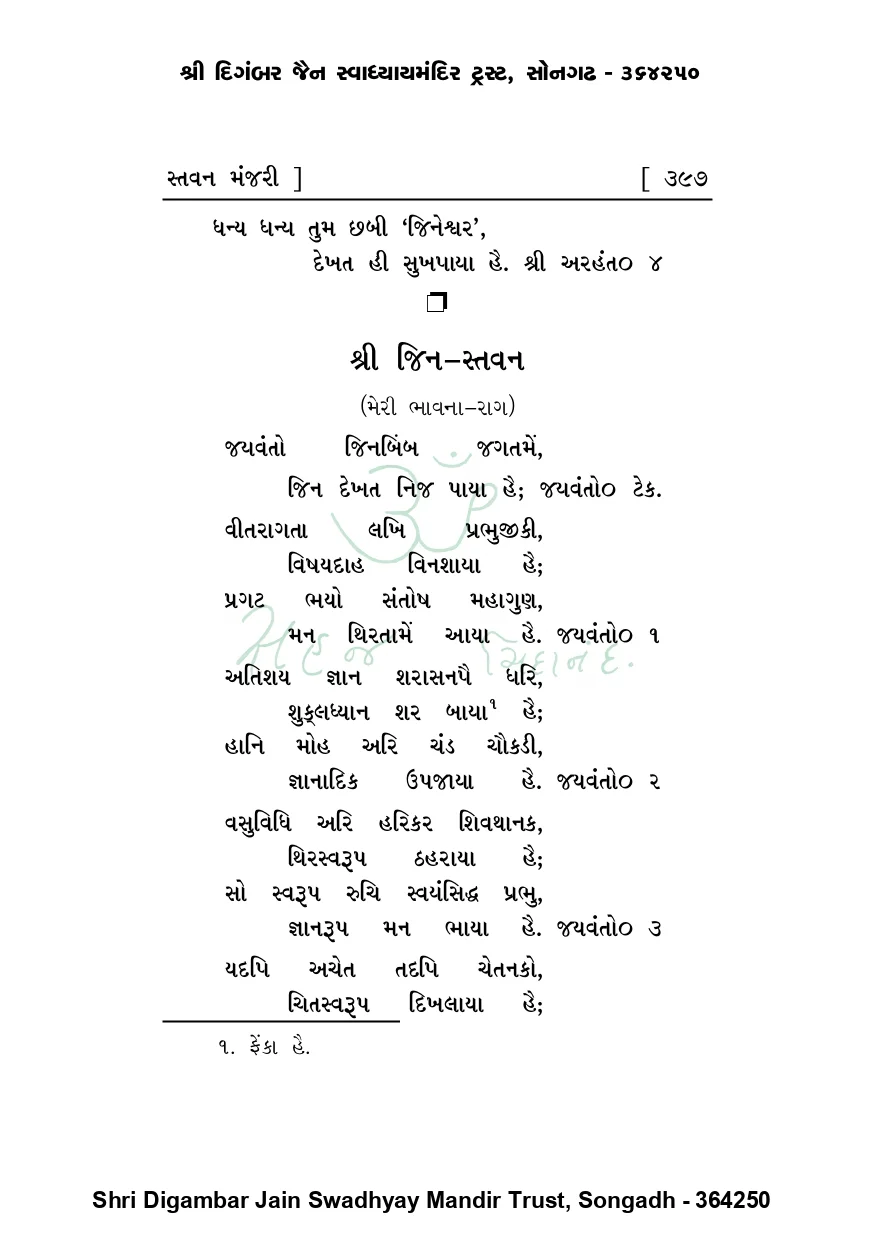 શ્રી દિગંબર જૈન સ્વાધ્યાયમંદિર ટ્રસ્ટ, સોનગઢ - ૩૬૪૨૫૦
સ્તવન મંજરી ] [ ૩૯૭
ધન્ય ધન્ય તુમ છબી ‘જિનેશ્વર’,
દેખત હી સુખપાયા હૈ. શ્રી અરહંત૦ ૪
શ્રી જિન–સ્તવન
(મેરી ભાવના–રાગ)
જયવંતો જિનબિંબ જગતમેં,
જિન દેખત નિજ પાયા હૈ; જયવંતો૦ ટેક.
વીતરાગતા લખિ પ્રભુજીકી,
વિષયદાહ વિનશાયા હૈ;
પ્રગટ ભયો સંતોષ મહાગુણ,
મન થિરતામેં આયા હૈ. જયવંતો૦ ૧
અતિશય જ્ઞાન શરાસનપૈ ધરિ,
શુક્લધ્યાન શર બાયા૧ હૈ;
હાનિ મોહ અરિ ચંડ ચૌકડી,
જ્ઞાનાદિક ઉપજાયા હૈ. જયવંતો૦ ૨
વસુવિધિ અરિ હરિકર શિવથાનક,
થિરસ્વરૂપ ઠહરાયા હૈ;
સો સ્વરૂપ રુચિ સ્વયંસિદ્ધ પ્રભુ,
જ્ઞાનરૂપ મન ભાયા હૈ. જયવંતો૦ ૩
યદપિ અચેત તદપિ ચેતનકો,
ચિતસ્વરૂપ દિખલાયા હૈ;
૧. ફેંકા હૈ.
ૐ
સહજ ચિદાનંદ.
Shri Digambar Jain Swadhyay Mandir Trust, Songadh - 364250